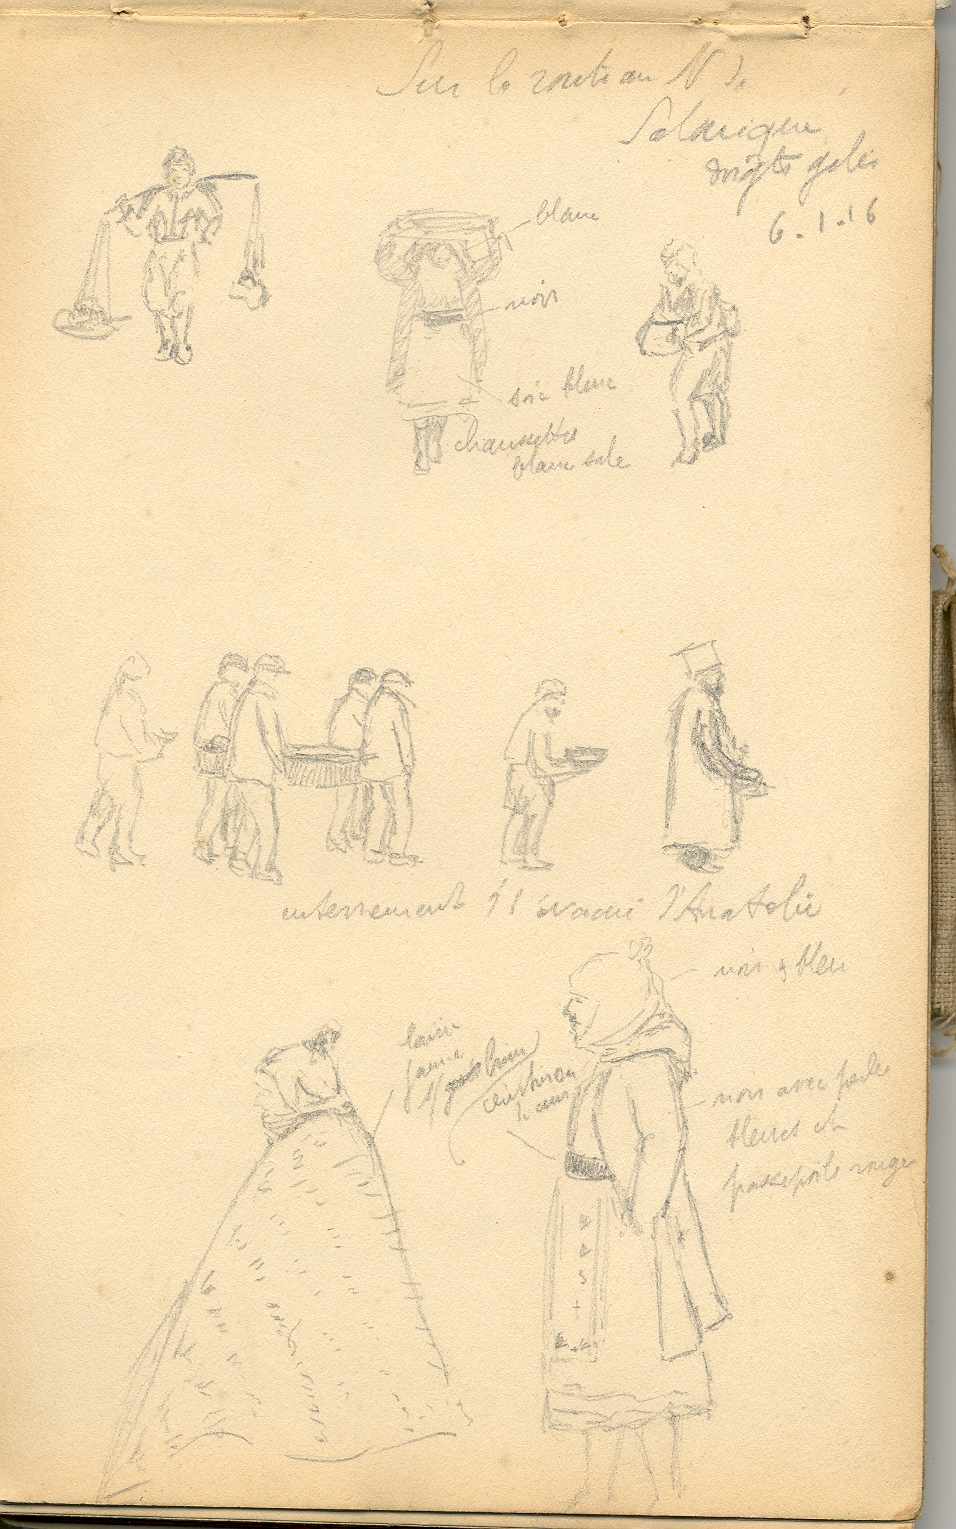 Sur la route au N
Salonique
doigts gelés
6.1.16
blanc
noir
soie bleue
chaussettes
blanc sale
enterrement d'1 évacué d'Anatolie
noir & bleu
laine
jaune
noir avec perles
bleues et
passepoils rouges